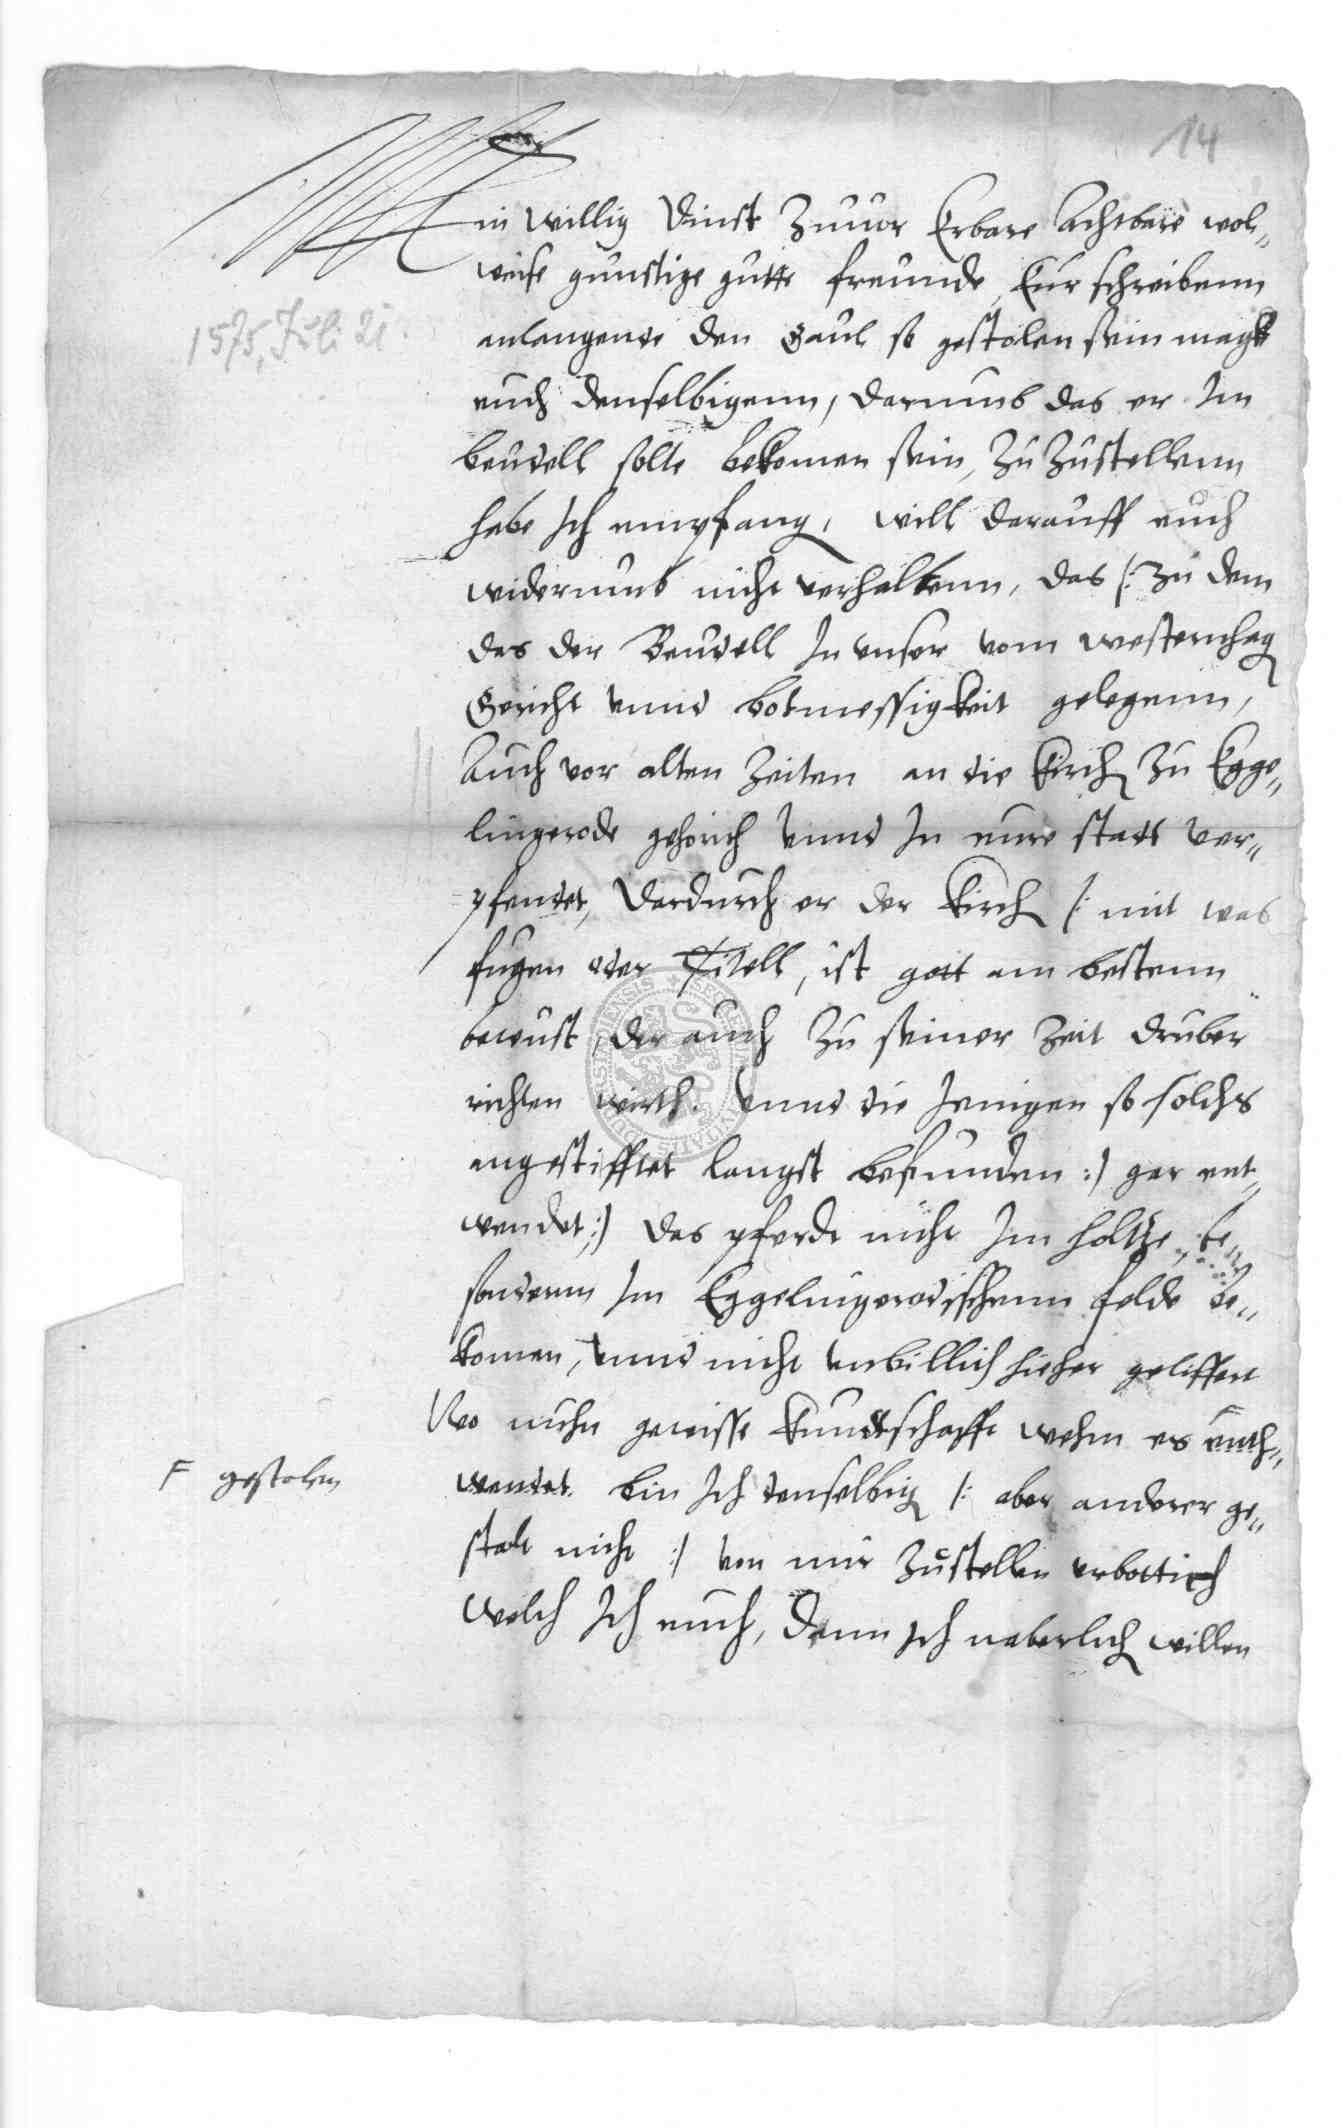 14
Mein willig Dinst Zuuor Erbare Achtbare wol„
weise gunstige gutte freunde, Eur schreibenn
1575, Juli 21.
anlangende den Gaul so gestolen sein magk
euch denselbigenn, darumb das er Im
beutell solte bekomen sein, Zu Zustellenn
habe Ich empfang, will darauff euch
widerumb nicht verhaltenn, das /: Zu dem
das der Beutell In unser vom westernhag
Gericht unnd botmessigkeit gelegenn,
Auch vor alten Zeiten an die Kirch Zu Egge„
lingerode gehorich unnd In eure statt ver„
pfendet, Dardurch er der Kirch /: mit was
fugen oder Titell, ist gott am bestenn
bewust, der auch Zu seiner Zeit druber
richten wirth. unnd die Jenigen so solchs
angestifftet langst befunden :/ gar ent„
wendet :/ das pferde nicht Im holtze, be„
sondernn Im Eggelingerodischenn felde be„
komen, unnd nicht unbillich hieher geliffert
Wo nuhn gewisse kundtschafft wehm es F enth„
F gestolen
wendet. bin Ich denselbig /: aber anderer ge„
stalt nicht :/ von mir Zustellen erbottich
Welch Ich euch, denn Ich naberlich willen